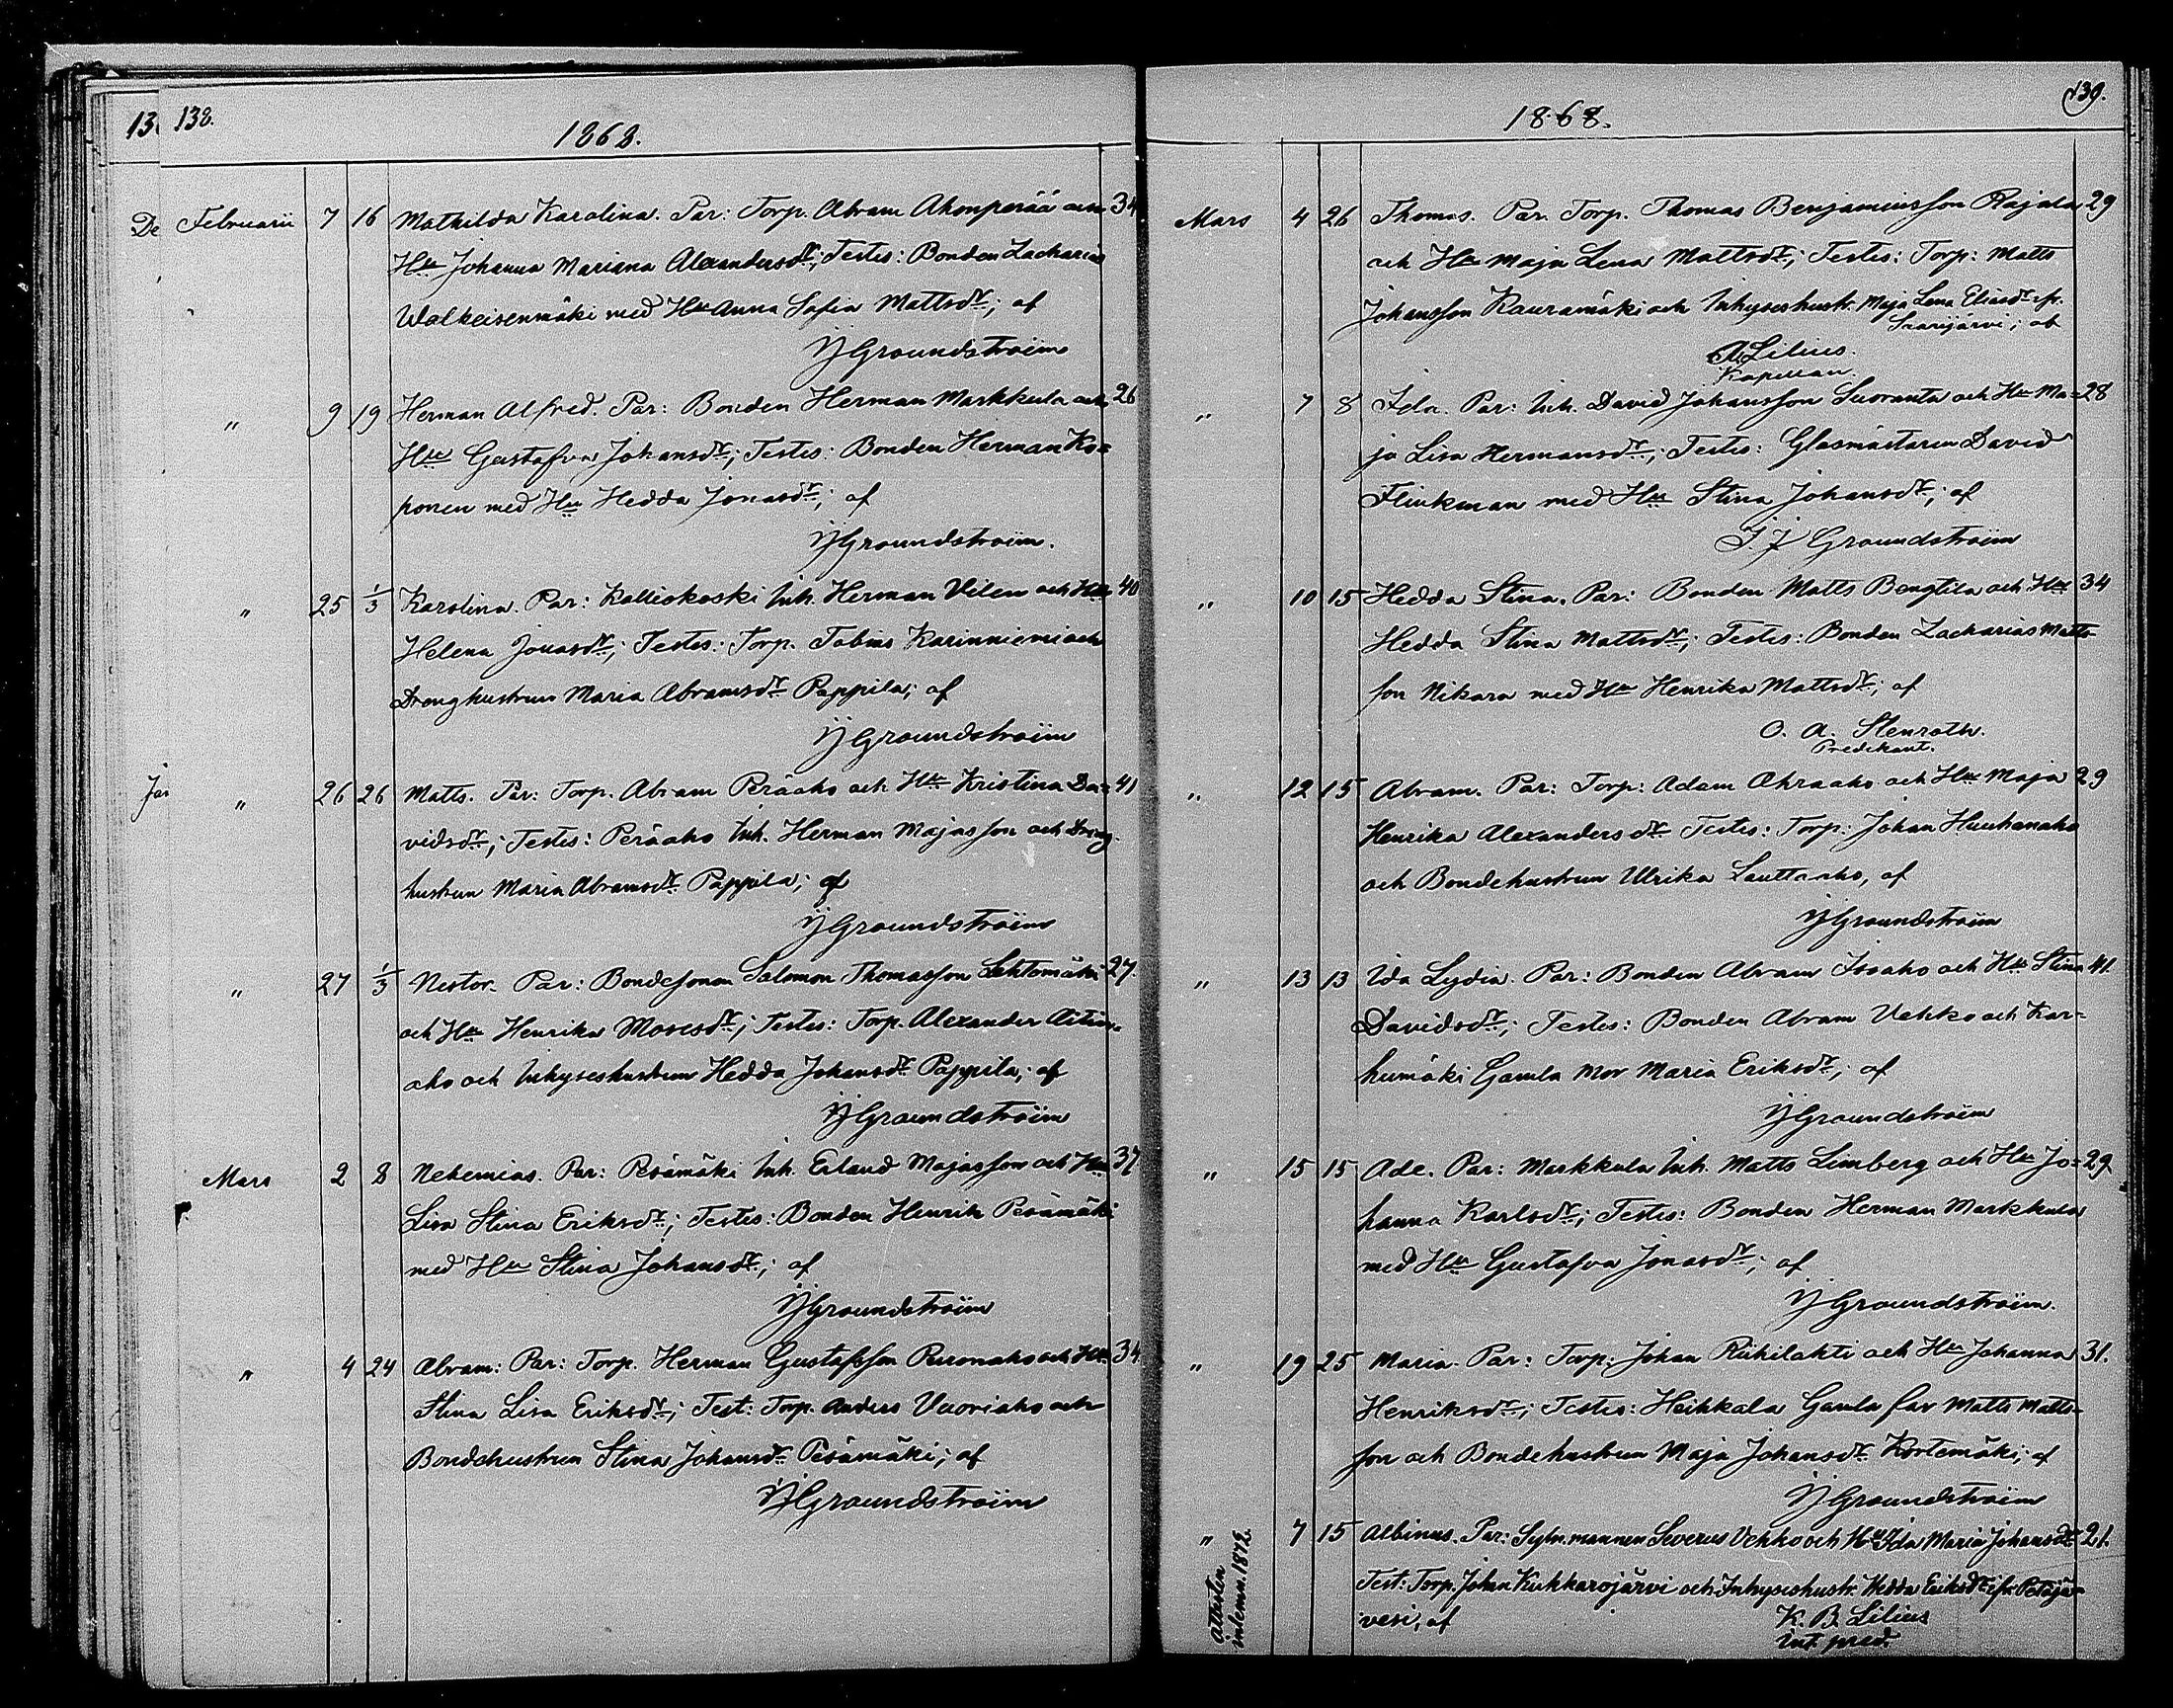 138.
1868.
Februarii 7 16 Mathilda Karolina. Par: Torp. Abram Ahonperää och 34
Hu Johanna Mariana Alexandersdr; Testes: Bonden Zacharias
Walkeisenmäki med Hu Anna Sofia Mattsdr; af
JJGroundstroëm
" 9 19 Herman Alfred. Par: Bonden Herman Markkula och 26
Hu Gustafva Johansdr; Testes: Bonden Herman Ko=
ponen med Hu Hedda Jonasdr; af
JJGroundstroëm.
" 25 1/3 Karolina. Par: Kalliokoski Inh. Herman Vilen och Hu 40
Helena Jonasdr; Testes: Torp. Tobias Karinniemi och
Drenghustrun Maria Abramsdr Pappila; af
JJGroundstroëm
" 26 26 Matts. Par: Torp. Abram Peräaho och Hu Kristina Da= 41
vidsdr; Testes: Peräaho Inh. Herman Majasson och Dreng
hustrun Maria Abramsdr Pappila; af
JJGroundstroëm
" 27 1/3 Nestor. Par: Bondesonen Salomon Thomasson Lehtomäki 27.
och Hu Henrika Mosesdr; Testes: Torp. Alexander
aho och Inhyseshustrun Hedda Johansdr Pappila; af
JJGroundstroëm
Mars 2 8 Nehemias. Par: Pesämäki Inh. Erland Majasson och Hu 37
Lisa Stina Eriksdr; Testes: Bonden Henrik Pesämäki
med Hu Stina Johansdr; af
JJGroundstroëm
" 4 24 Abram: Par: Torp. Herman Gustafsson Piironaho och Hu 34
Stina Lisa Eriksdr; Test: Torp. Anders Vuoriaho och
Bondehustrun Stina Johansdr Pesämäki; af
JJGroundstroëm
139.
1868.
Mars 4 26 Thomas. Par. Torp. Thomas Benjaminsson Rajala 29
och Hu Maja Lena Mattsdr; Testes: Torp: Matts
Johansson Kauramäki och Inhyseshustr. Maja Lena Eliasdr ifr.
Saarijärvi; af
A. Lilius.
Kapellan.
" 7 8 Ida. Par: Inh. David Johansson Suoranta och Hu Ma= 28
ja Lisa Hermansdr; Testes: Glasmästaren David
Flinkman med Hu Stina Johansdr; af
J J Groundstroëm
" 10 15 Hedda Stina. Par: Bonden Matts Bengtila och Hu 34
Hedda Stina Mattsdr; Testes: Bonden Zacharias Matts-
son Nikara med Hu Henrika Mattsdr; af
O. A. Stenroth.
Predikant.
" 12 15 Abram. Par: Torp: Adam Ahraaho och Hu Maja 29
Henrika Alexandersdr Testes: Torp: Johan Huuhanaho
och Bondehustrun Ulrika Lauttaaho, af
JJGroundstroëm
" 13 13 Ida Lydia. Par: Bonden Abram Isoaho och Hu Stina 41.
Davidsdr; Testes: Bonden Abram Vehko och Kar=
humäki Gamla Mor Maria Eriksdr; af
JJGroundstroëm
" 15 15 Ade. Par: Markkula Inh. Matts Limberg och Hu Jo= 29.
hanna Karlsdr; Testes: Bonden Herman Markkula
med Hu Gustafva Jonasdr; af
JJGroundstroëm.
" 19 25 Maria. Par: Torp: Johan Riihilahti och Hu Johanna 31.
Henriksdr; Testes: Heikkala Gamla far Matts Matts-
son och Bondehustrun Maja Johansdr Kortemäki; af
JJGroundstroëm
" 7 15 Albinus. Par: Sytn.mannen Severus Vehko och Hu Ida Maria Johansdr 21.
Test: Torp. Johan Kukkarojärvi och Inhyseshustr. Hedda Eriksdr ifr. Petäjä-
vesi, af K. B. Lilius
int. pred.
Attesten
inlemn. 1872.